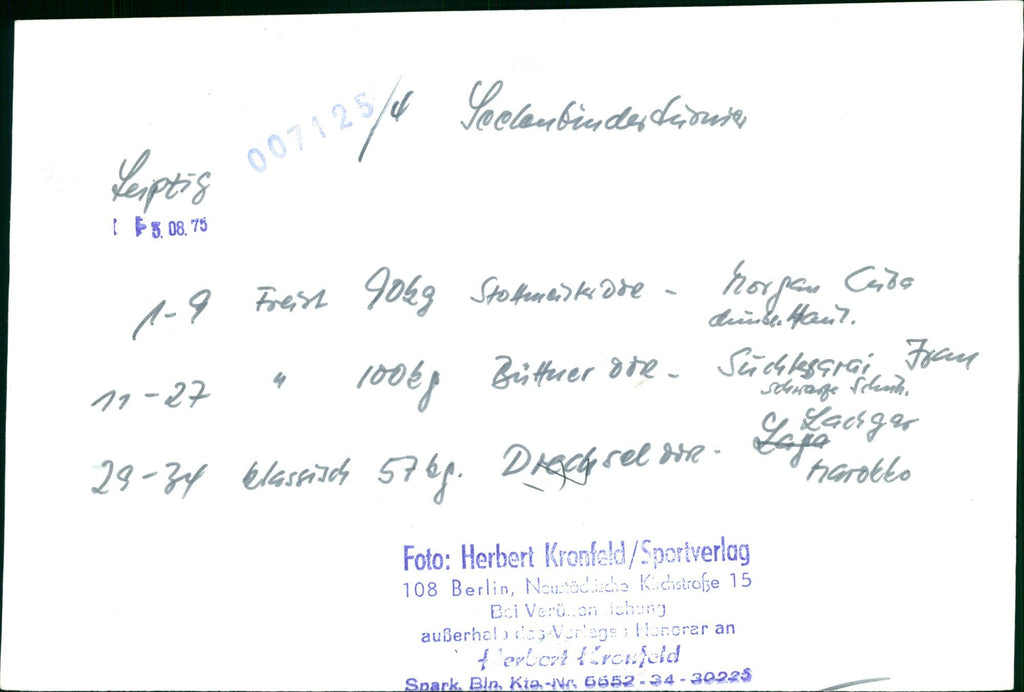 007125/4 Seelenbinderturnier
Leipzig
5. 08. 75
1-9 Freist 90kg Stottmeister DDR - Morgan Cuba
dunk. Haut.
11-27 " 100kg Büttner DDR - Suchtesarai Iran
schwarze Schuh.
29-34 klassisch 57kg. Drechsel DDR - Lachgar
Marokko
Foto: Herbert Kronfeld/Sportverlag
108 Berlin, Neustädtische Kirchstraße 15
Bei Veröffentlichung
außerhalb des Verlages Honorar an
Herbert Kronfeld
Spark. Bln. Kto.-Nr. 6652-34-30225